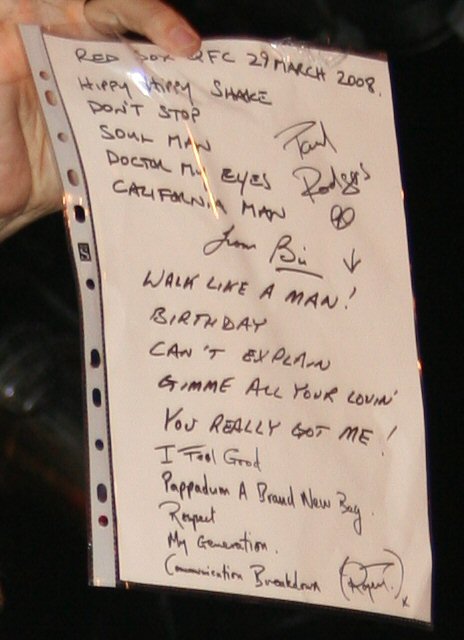 RED SOX RFC 29 MARCH 2008.
HIPPY HIPPY SHAKE
DON'T STOP
SOUL MAN
DOCTOR MY EYES
CALIFORNIA MAN
Paul
Rodgers
from Bri
WALK LIKE A MAN!
BIRTHDAY
CAN'T EXPLAIN
GIMME ALL YOUR LOVIN'
YOU REALLY GOT ME!
I Feel Good
Pappadum A Brand New Bag.
Respect
My Generation.
Communication Breakdown (Roger.) x